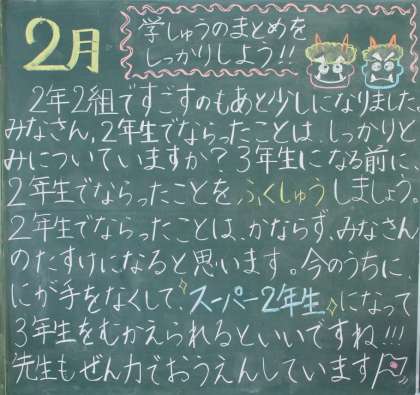 2月
学しゅうのまとめを
しっかりしよう!!
2年2組ですごすのもあと少しになりました
みなさん,2年生でならったことは、しっかりと
みについていますか?3年生になる前に、
2年生でならったことを、ふくしゅうしましょう。
2年生でならったことは、かならず、みなさん
のたすけになると思います。今のうちに
にが手をなくして、スーパー2年生になって
3年生をむかえられるといいですね!!!
先生もぜん力でおうえんしています